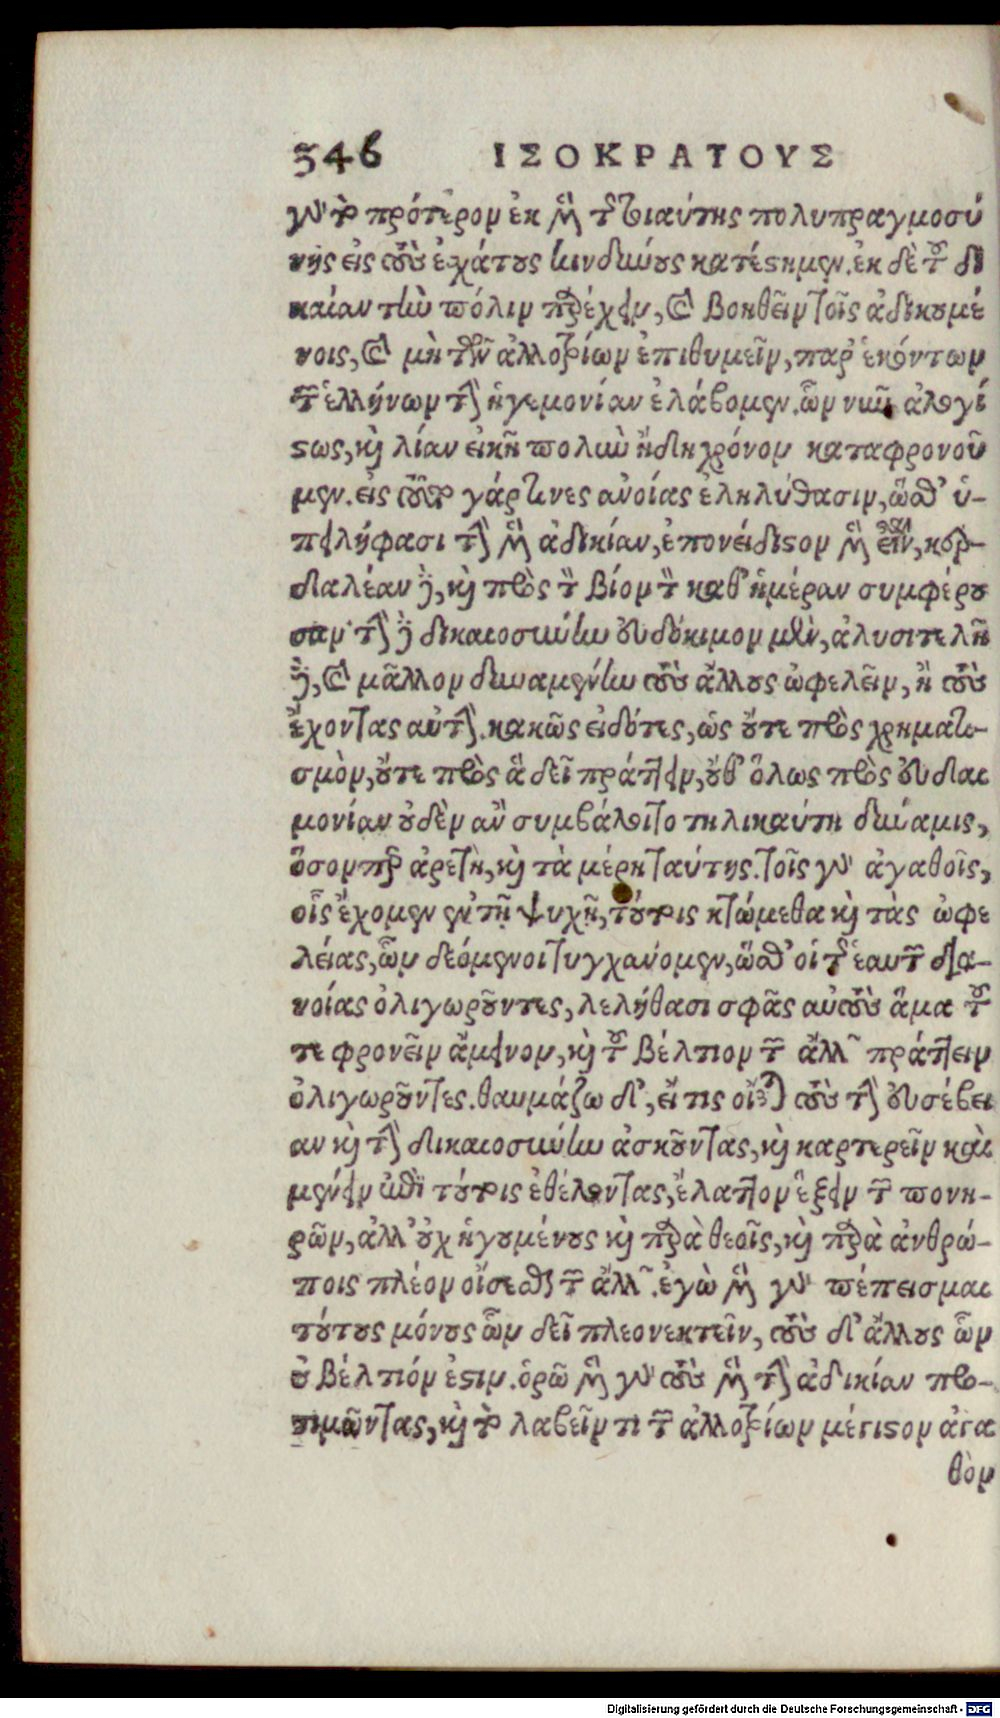 346 ΙΣΟΚΡΑΤΟΥΣ
γὰρ τὸ πρότερον ἐκ μὲν τῆς τοιαύτης πολυπραγμοσύ
νης εἰς τοὺς ἐχάτους κινδύνους κατέστημεν. ἐκ δὲ τοῦ δι
καίαν τὴν πόλιν παρέχειν, καὶ βοηθεῖν τοῖς ἀδικουμέ
νοις, καὶ μὴ τῶν ἀλλοτρίων ἐπιθυμεῖν, παρ' ἑκόντων
τῶν ἑλλήνων τὴν ἡγεμονίαν ἐλάβομεν. ὧν νῦν ἀλογί
στως, καὶ λίαν εἰκῆ πολὺν ἤδη χρόνον καταφρονοῦ
μεν. εἰς τοῦτο γάρ τινες ἀνοίας ἐληλύθασιν, ὥσθ' ὑ-
πειλήφασι τὴν μὲν ἀδικίαν, ἐπονείδιστον μὲν εἶναι, κερ-
δαλέαν δὲ, καὶ πρὸς τὸν βίον τὸν καθ' ἡμέραν συμφέρου
σαν· τὴν δὲ δικαιοσύνην εὐδόκιμον μὲν, ἀλυσιτελῆ
δὲ, καὶ μᾶλλον δυναμένην τοὺς ἄλλους ὠφελεῖν, ἢ τοὺς
ἔχοντας αὐτήν. κακῶς εἰδότες, ὡς οὔτε πρὸς χρηματι-
σμὸν, οὔτε πρὸς ἃ δεῖ πράττειν, οὔθ' ὅλως πρὸς εὐδαι
μονίαν οὐδὲν ἂν συμβάλοιτο τηλικαύτη δύναμις,
ὅσον περ ἀρετὴ, καὶ τὰ μέρη ταύτης. τοῖς γὰρ ἀγαθοῖς,
οἷς ἔχομεν ἐν τῇ ψυχῇ, τούτοις κτώμεθα καὶ τὰς ὠφε
λείας, ὧν δεόμενοι τυγχάνομεν, ὥσθ' οἱ τῆς ἑαυτῶν δια-
νοίας ὀλιγωροῦντες, λελήθασι σφᾶς αὐτοὺς ἅμα τοῦ
τε φρονεῖν ἄμεινον, καὶ τοῦ βέλτιον τῶν ἄλλων πράττειν
ὀλιγωροῦντες. θαυμάζω δ', εἴ τις οἴεται τοὺς τὴν εὐσέβει
αν καὶ τὴν δικαιοσύνην ἀσκοῦντας, καὶ καρτερεῖν καὶ
μένειν ἐπὶ τούτοις ἐθέλοντας, ἔλαττον ἕξειν τῶν πονη-
ρῶν, ἀλλ' οὐχ ἡγουμένους καὶ παρὰ θεοῖς, καὶ παρὰ ἀνθρώ-
ποις πλέον οἴσεσθαι τῶν ἄλλων. ἐγὼ μὲν γὰρ πέπεισμαι
τούτους μόνους ὧν δεῖ πλεονεκτεῖν, τοὺς δ' ἄλλους ὧν
οὐ βέλτιόν ἐστιν. ὁρῶ μὲν γὰρ τοὺς μὲν τὴν ἀδικίαν προ-
τιμῶντας, καὶ τὸ λαβεῖν τι τῶν ἀλλοτρίων μέγιστον ἀγα
θὸν
Digitalisierung gefördert durch die Deutsche Forschungsgemeinschaft - DFG